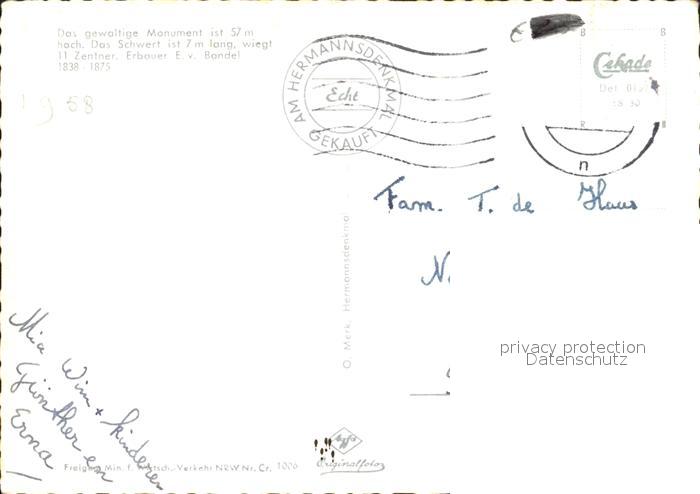 Das gewaltige Monument ist 57 m
hoch. Das Schwert ist 7 m lang, wiegt
11 Zentner. Erbauer E. v. Bandel
1838 - 1875
1958
AM HERMANNSDENKMAL
Echt
GEKAUFT
Cekade
n
Fam. T. de Haas
N.
O. Merk, Hermannsdenkmal
privacy protection
Datenschutz
Mia Wim + kinderen
Günther en
Erna
Agfa
Originalfoto
Freig. Min. f. Wirtsch. Verkehr NRW Nr. Cr. 1006